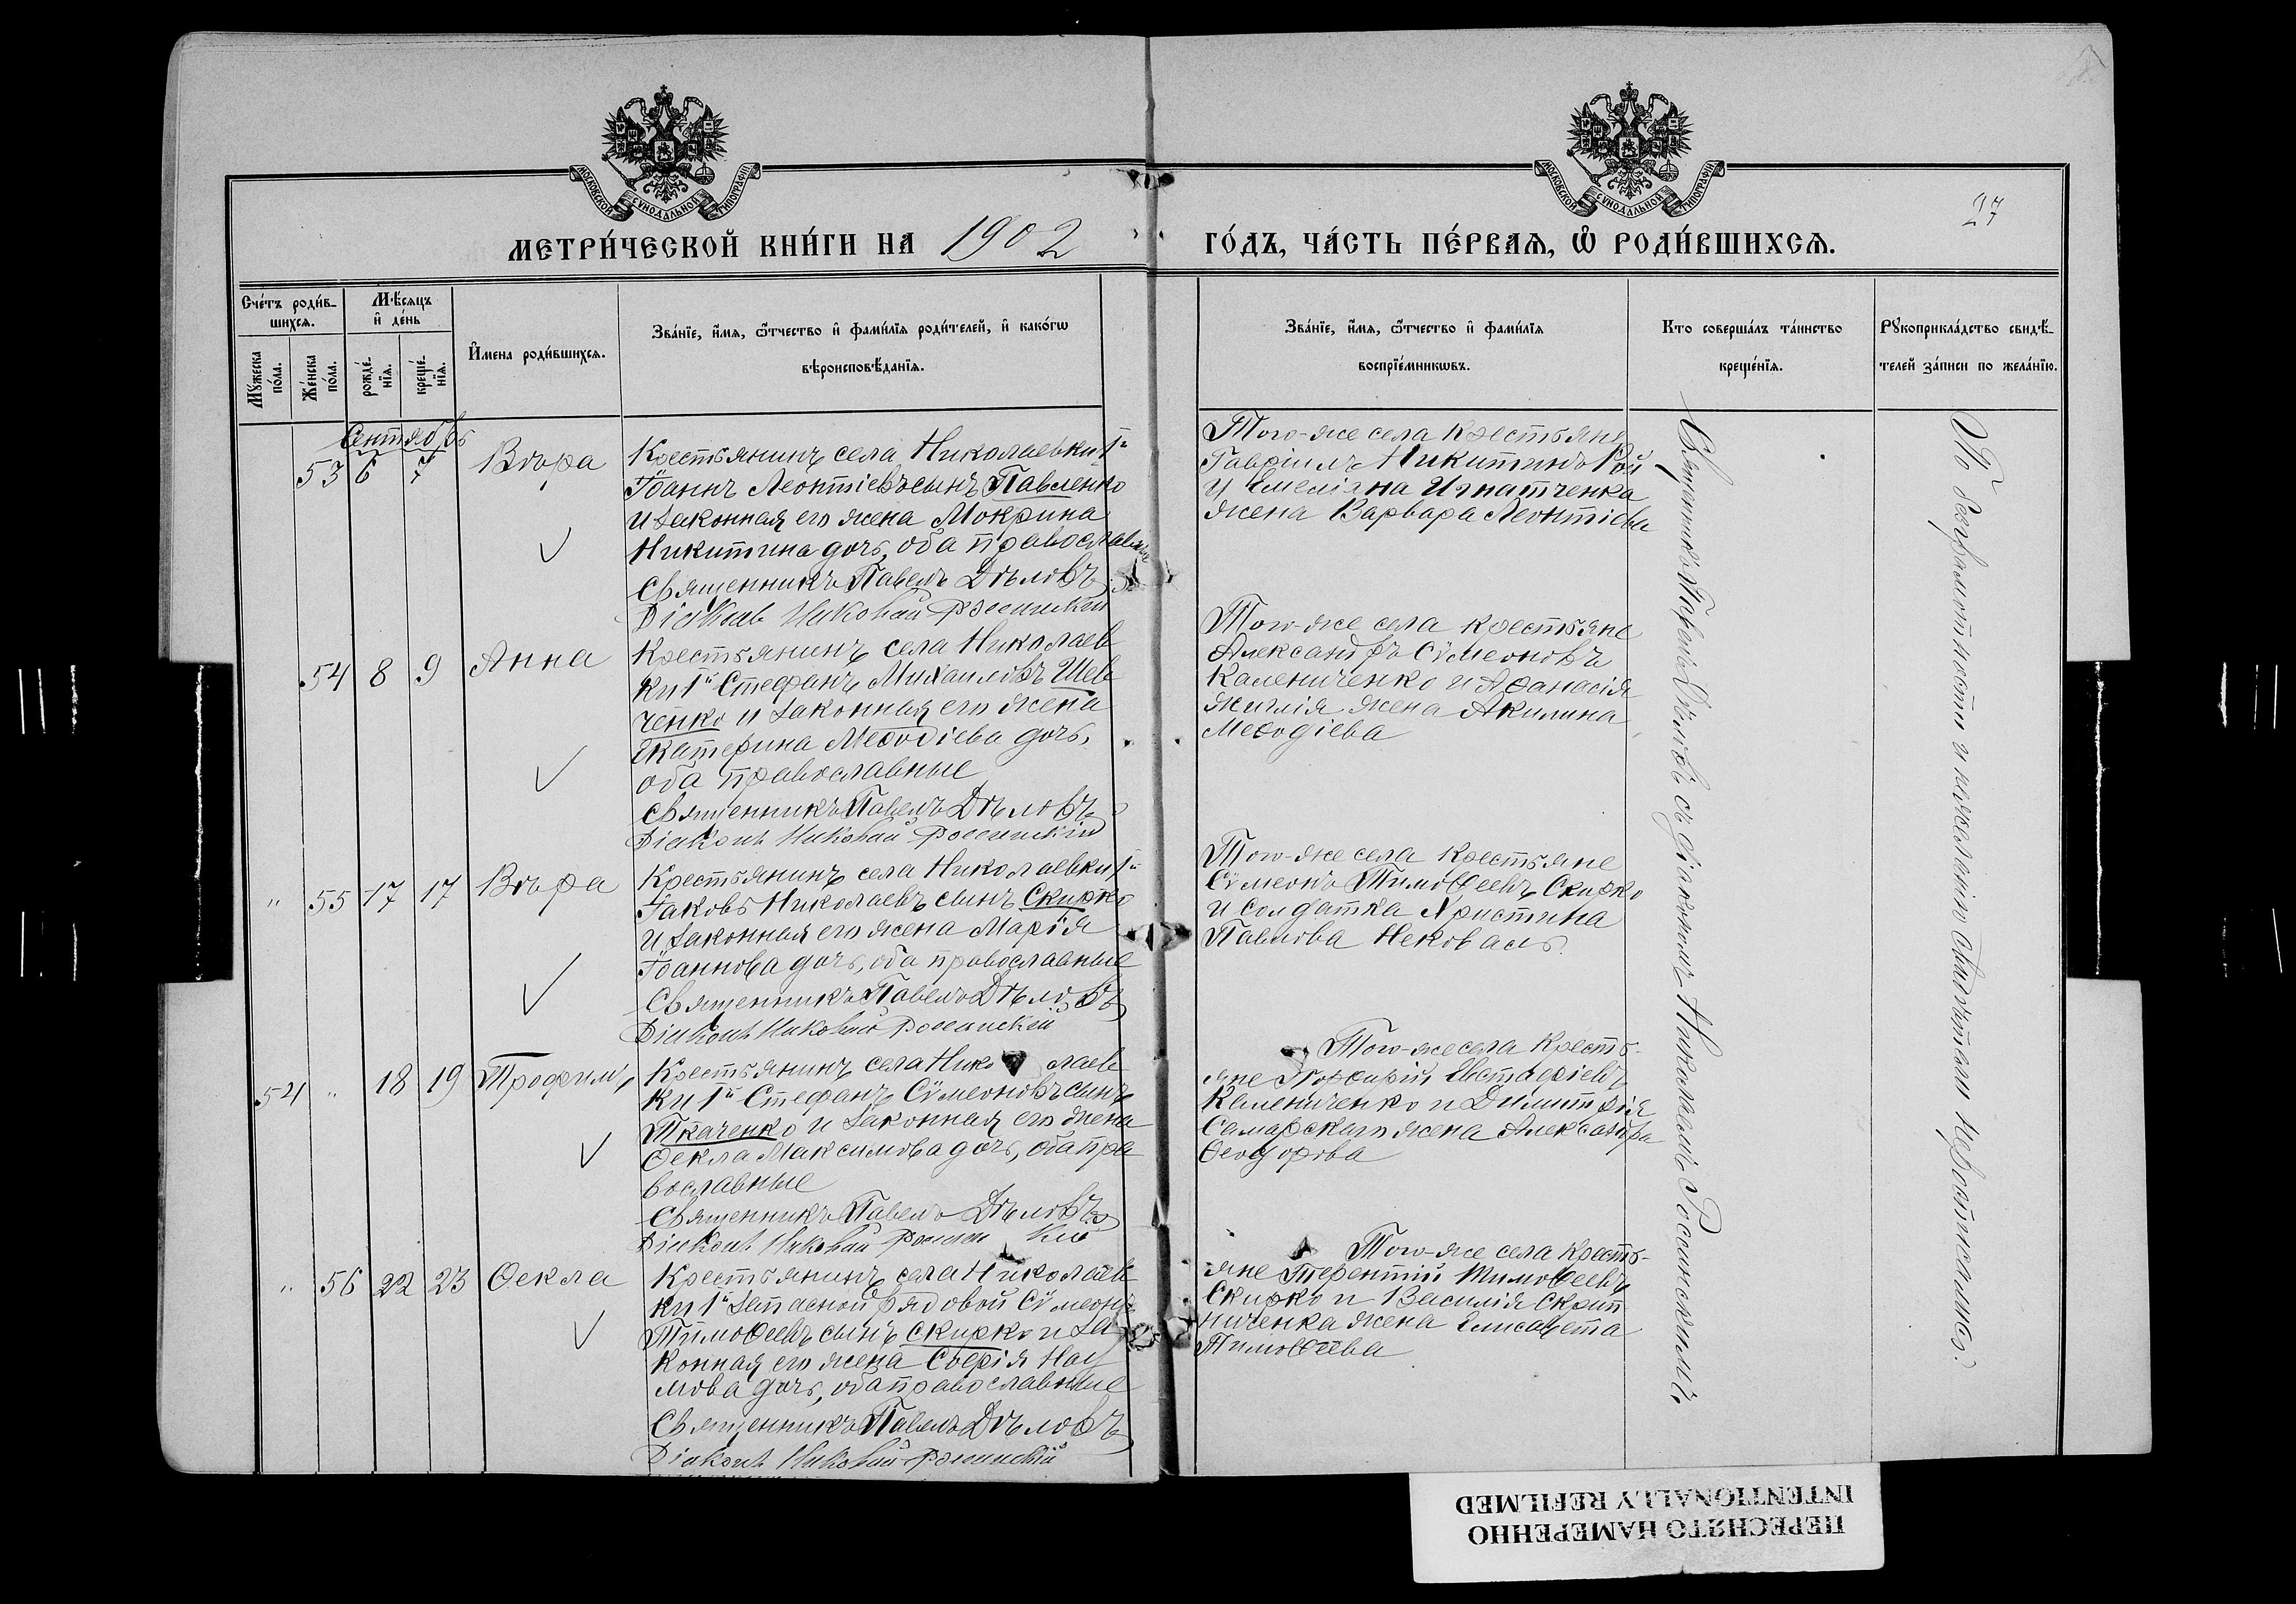 МОСКОВСКОЙ СѴНОДАЛЬНОЙ ТИПОГРАФІИ
МОСКОВСКОЙ СѴНОДАЛЬНОЙ ТИПОГРАФІИ
27
МЕТРИ́ЧЕСКОЙ КНИ́ГИ НА 1902 ГО́ДЪ, ЧА́СТЬ ПЕ́РВАѦ, Ѡ҆ РОДИ́ВШИХСѦ.
Сче́тъ роди́в-
шихсѧ.
Мꙋ́жеска
по́ла.
Же́нска
по́ла.
Мѣ́сѧцъ
и҆ де́нь
рожде́-
нїѧ.
креще́-
нїѧ.
И҆мена роди́вшихсѧ.
Зва́нїе, и҆́мѧ, ѻ҆́тчество и҆ фами́лїѧ роди́телей, и҆ како́гѡ
вѣроисповѣ́данїѧ.
Зва́нїе, и҆́мѧ, ѻ҆́тчество и҆ фами́лїѧ
воспрїе́мникѡвъ.
Кто соверша́лъ та́инство
креще́нїѧ.
Рꙋкоприкла́дство свидѣ́-
телей за́писи по жела́нїю.
Сентябрь
53 6 7 Вѣра
Крестьянинъ села Николаевки 1й
Іоаннъ Леонтіевъ сынъ Павленко
и законная его жена Мокрина
Никитина дочь, оба православные
Священникъ Павелъ Дѣловъ
Діаконъ Николай Россинскій
Того-же села крестьяне
Гавріилъ Никитинъ Рой
и Емеліана Игнатченка
жена Варвара Леонтіева
54 8 9 Анна
Крестьянинъ села Николаев
ки 1й Стефанъ Михаиловъ Шев
ченко и законная его жена
Екатерина Меѳодіева дочь,
оба православные
Священникъ Павелъ Дѣловъ
Діаконъ Николай Россинскій
Того-же села крестьяне
Александръ Сѵмеоновъ
Калениченко и Аѳанасія
жена Акилина
Меѳодіева
" 55 17 17 Вѣра
Крестьянинъ села Николаевки 1й
Іаковъ Николаевъ сынъ Скирко
и законная его жена Марія
Іоаннова дочь, оба православные
Священникъ Павелъ Дѣловъ
Діаконъ Николай Россинскій
Того-же села крестьяне
Сѵмеонъ Тимоѳеевъ Скирко
и солдатка Христина
Павлова Нековаль.
54 " 18 19 Трофимъ
Крестьянинъ села Нико лаев
ки 1й Стефанъ Сѵмеоновъ сынъ
Ткаченко и законная его жена
Ѳекла Максимова дочь, оба пра
вославные
Священникъ Павелъ Дѣловъ
Діаконъ Николай Россинскій
Того-же села кресть-
яне Порфирій Евстафіевъ
Калениченко и Димитрія
Самарскаго жена Александра
Ѳеодорова
" 56 22 23 Ѳекла
Крестьянинъ села Николаев
ки 1й запасной рядовой Сѵмеонъ
Тимоѳеевъ сынъ Скирко и за
конная его жена Софія Нау
мова дочь, оба православные
Священникъ Павелъ Дѣловъ
Діаконъ Николай Россинскій
Того-же села кресть-
яне Терентій Тимоѳеевъ
Скирко и Василія Скрип
ниченка жена Елисавета
Тимоѳеева
Священникъ Павелъ Дѣловъ съ діакономъ Николаемъ Россинскимъ.
По безграмотности и нежеланію свидѣтели неросписались.
ПЕРЕСНЯТО НАМЕРЕННО
INTENTIONALLY REFILMED